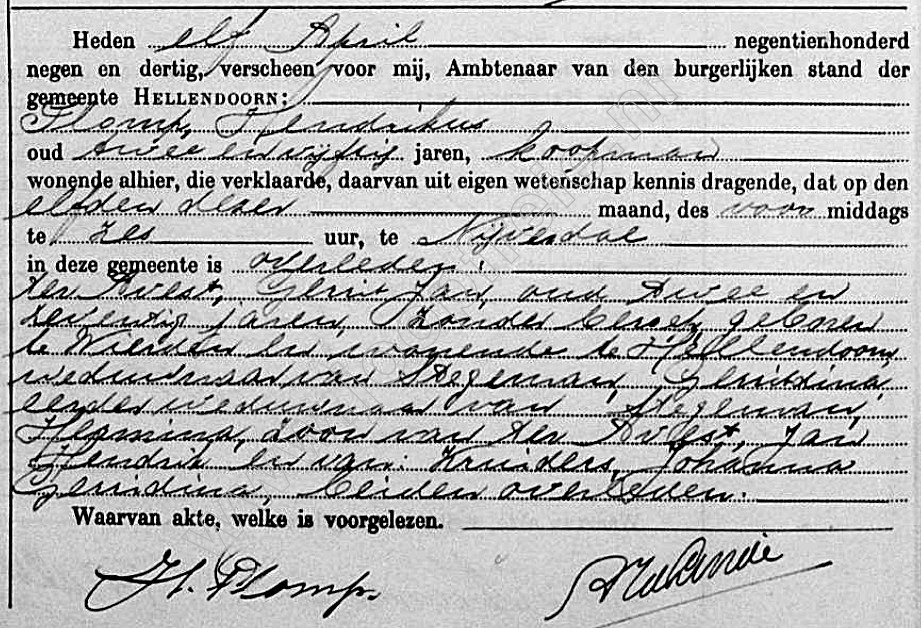 Heden elf April negentienhonderd
negen en dertig, verscheen voor mij, Ambtenaar van den burgerlijken stand der
gemeente HELLENDOORN:
Plomp, Hendrikus
oud twee en vijftig jaren, koopman
wonende alhier, die verklaarde, daarvan uit eigen wetenschap kennis dragende, dat op den
elfden dezer maand, des voor middags
te zes uur, te Nijverdal
in deze gemeente is overleden:
ter Avest, Gerrit Jan, oud twee en
zeventig jaren, zonder beroep, geboren
te Wierden en wonende te Hellendoorn,
weduwnaar van Stegeman, Gerritdina,
eerder weduwnaar van Stegeman,
Hermina, zoon van ter Avest, Jan
Hendrik en van Kruiders, Johanna
Gerridina, beiden overleden.
Waarvan akte, welke is voorgelezen.
H. Plomp.